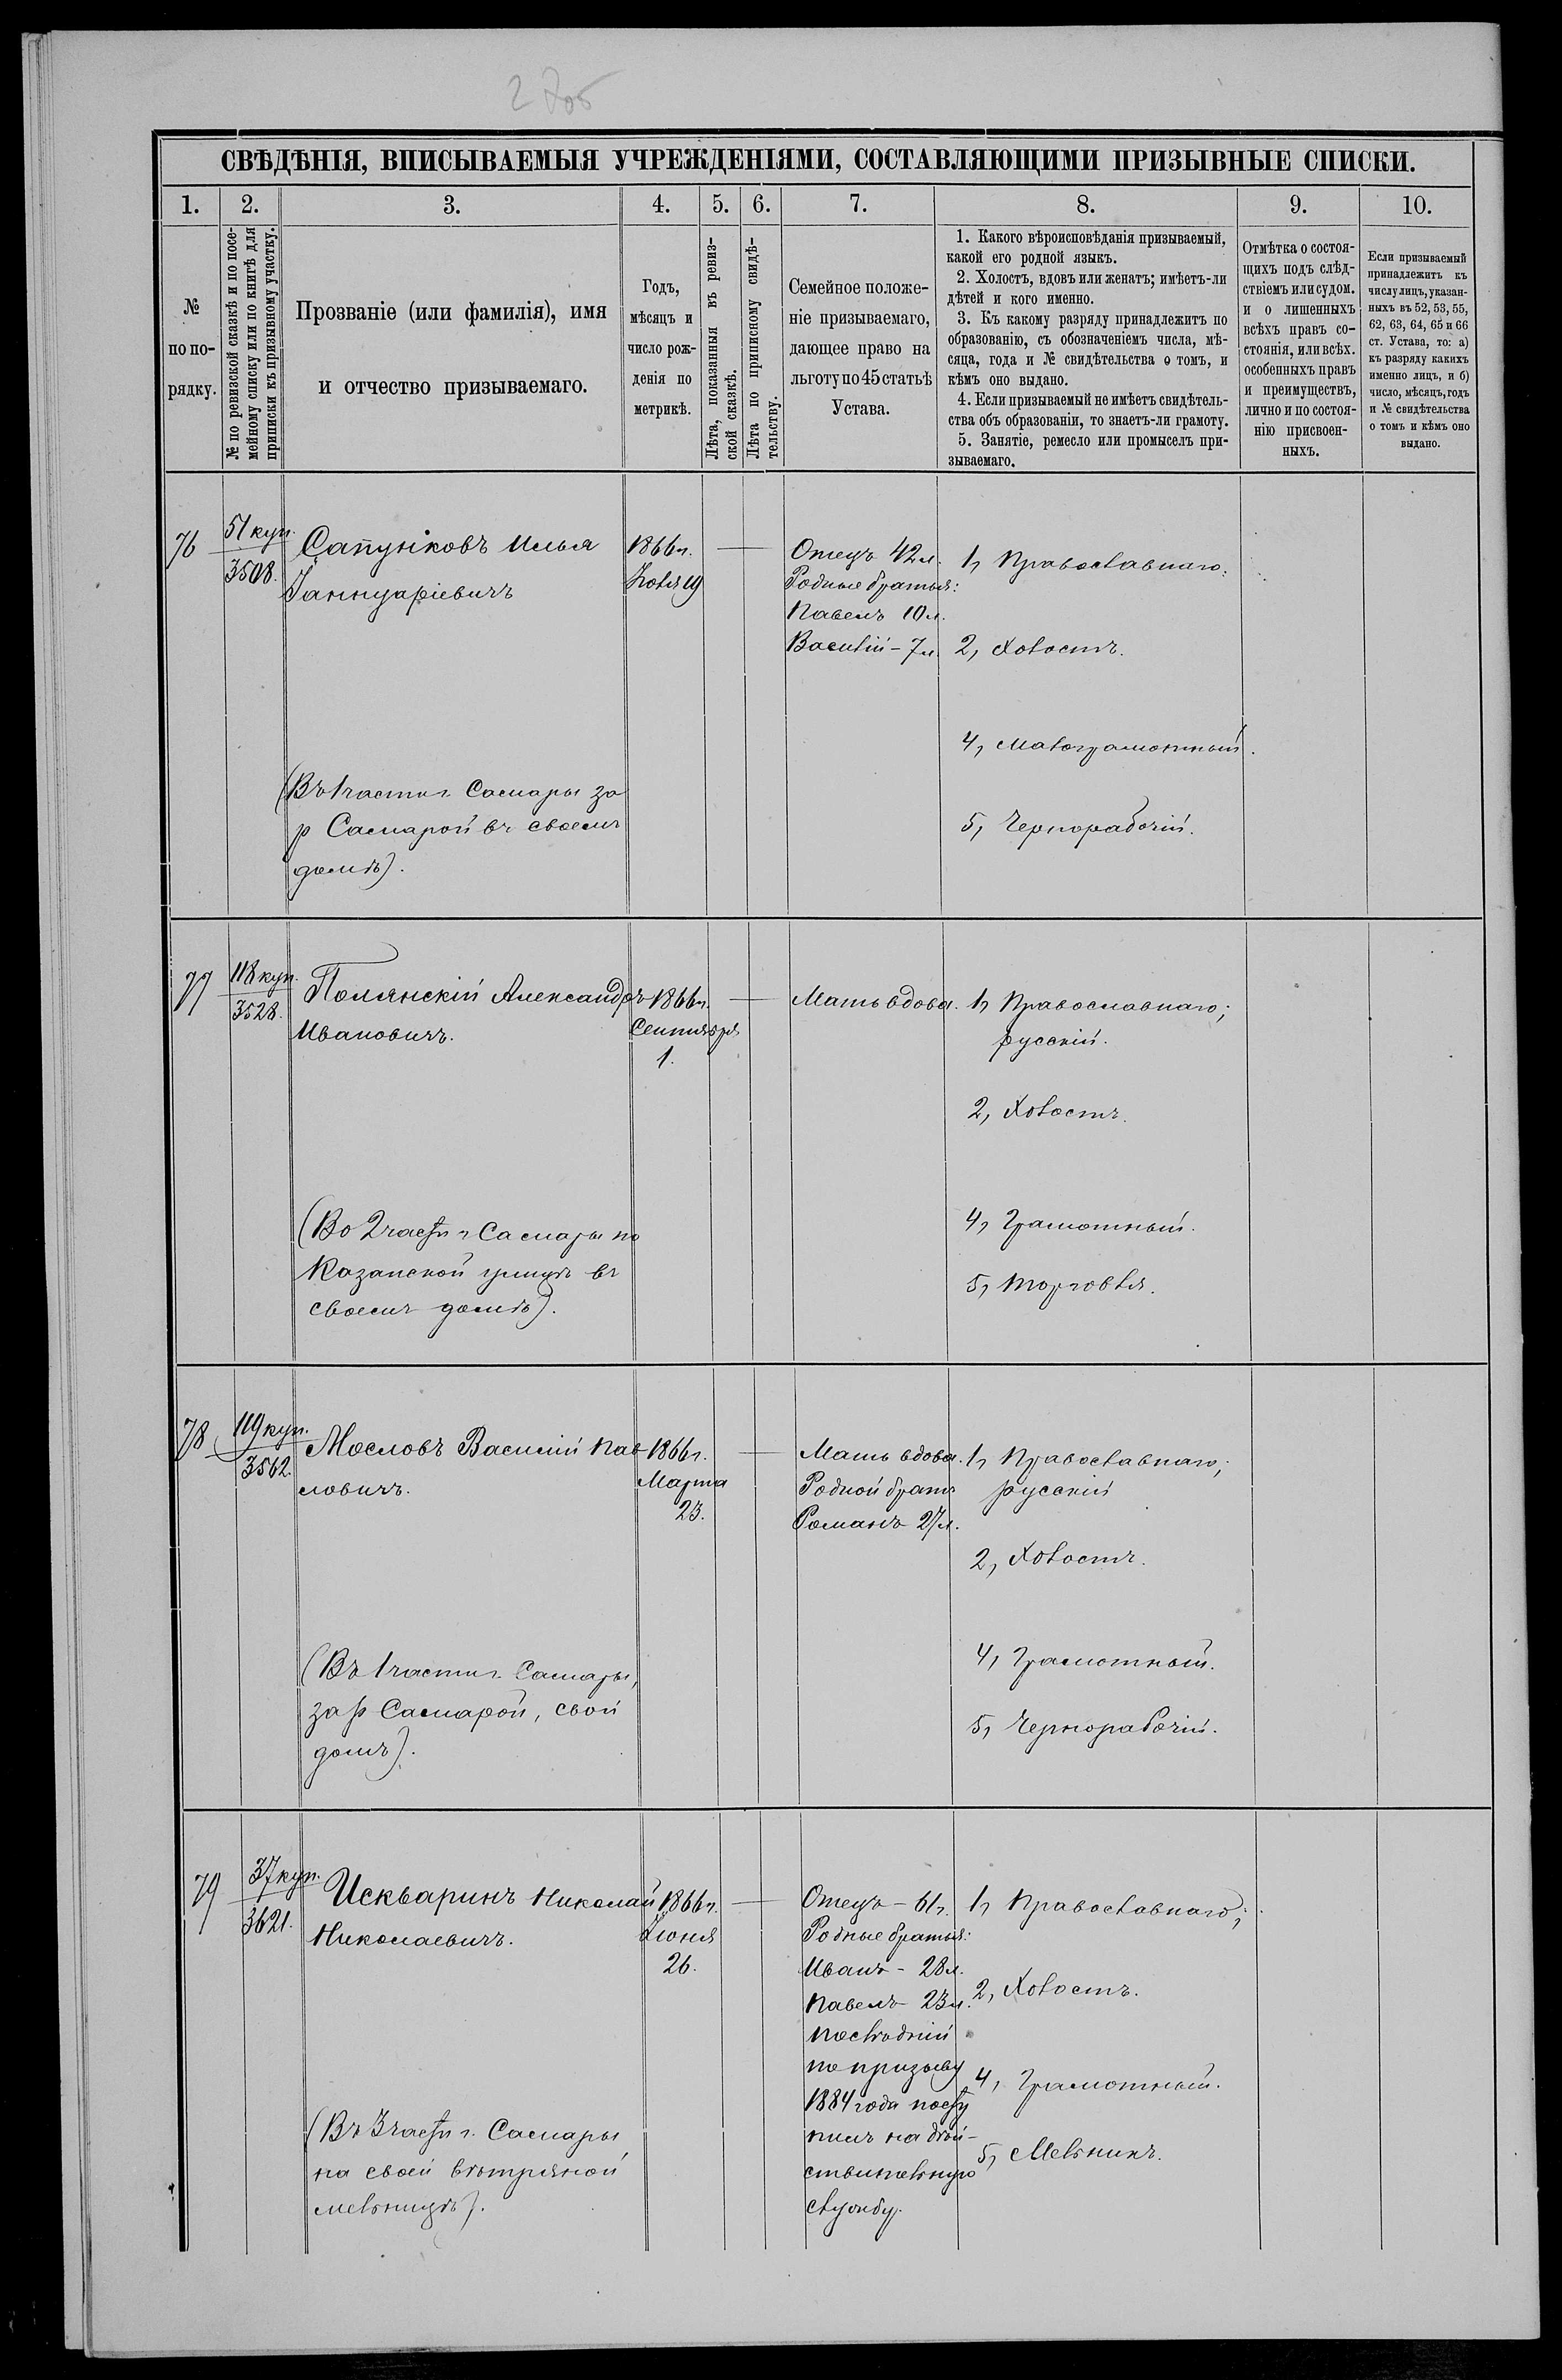 СВѢДѢНІЯ, ВПИСЫВАЕМЫЯ УЧРЕЖДЕНІЯМИ, СОСТАВЛЯЮЩИМИ ПРИЗЫВНЫЕ СПИСКИ.
1.
2.
3.
4.
5.
6.
7.
8.
9.
10.
№
по по-
рядку.
№ по ревизской сказкѣ и по посе-
мейному списку или по книгѣ для
приписки къ призывному участку.
Прозваніе (или фамилія), имя
и отчество призываемаго.
Годъ,
мѣсяцъ и
число рож-
денія по
метрикѣ.
Лѣта, показанныя въ ревиз-
ской сказкѣ.
Лѣта по приписному свидѣ-
тельству.
Семейное положе-
ніе призываемаго,
дающее право на
льготу по 45 статьѣ
Устава.
1. Какого вѣроисповѣданія призываемый,
какой его родной языкъ.
2. Холостъ, вдовъ или женатъ; имѣетъ-ли
дѣтей и кого именно.
3. Къ какому разряду принадлежитъ по
образованію, съ обозначеніемъ числа, мѣ-
сяца, года и № свидѣтельства о томъ, и
кѣмъ оно выдано.
4. Если призываемый не имѣетъ свидѣтель-
ства объ образованіи, то знаетъ-ли грамоту.
5. Занятіе, ремесло или промыселъ при-
зываемаго.
Отмѣтка о состоя-
щихъ подъ слѣд-
ствіемъ или судом.
и о лишенныхъ
всѣхъ правъ со-
стоянія, или всѣх.
особенныхъ правъ
и преимуществъ,
лично и по состоя-
нію присвоен-
ныхъ.
Если призываемый
принадлежитъ къ
числу лицъ, указан-
ныхъ въ 52, 53, 55,
62, 63, 64, 65 и 66
ст. Устава, то: а)
къ разряду какихъ
именно лицъ, и б)
число, мѣсяцъ, годъ
и № свидѣтельства
о томъ и кѣмъ оно
выдано.
76
51 куп.
3508.
Сапуніковъ Илья
Іаннуаріевичъ
(Въ 1 части г. Самары за
р Самарой въ своемъ
домѣ).
1866 г.
Іюля 19
Отецъ 42 л.
Родные братья:
Павелъ 10 л.
Василій - 7 л.
1, Православнаго;
2, Холостъ.
4, Малограмотный.
5, Чернорабочій.
77
118 куп.
3528.
Полянскій Александръ
Ивановичъ.
(Во 2 части г Самары по
Казанской улицѣ въ
своемъ домѣ).
1866 г.
Сентября
1.
Мать вдова.
1, Православнаго;
русскій.
2, Холостъ.
4, Грамотный.
5, Торговля.
78
119 куп.
3562.
Мословъ Василій Пав
ловичъ.
(Въ 1 части г. Самары,
за р Самарой, свой
домъ).
1866 г.
Марта
23.
Мать вдова.
Родной братъ
Романъ 27 л.
1, Православнаго;
русскій
2, Холостъ.
4, Грамотный.
5, Чернорабочій.
79
37 куп.
3621.
Искваринъ Николай
Николаевичъ.
(Въ 3 части г. Самары
на своей вѣтряной
мельницѣ).
1866 г.
Іюня
26.
Отецъ - 61 г.
Родные братья:
Иванъ - 28 л.
Павелъ 23 л.
послѣдній
по призыву
1884 года посту
пилъ на дѣй-
ствительную
службу.
1, Православнаго;
2, Холостъ.
4, Грамотный.
5, Мельникъ.